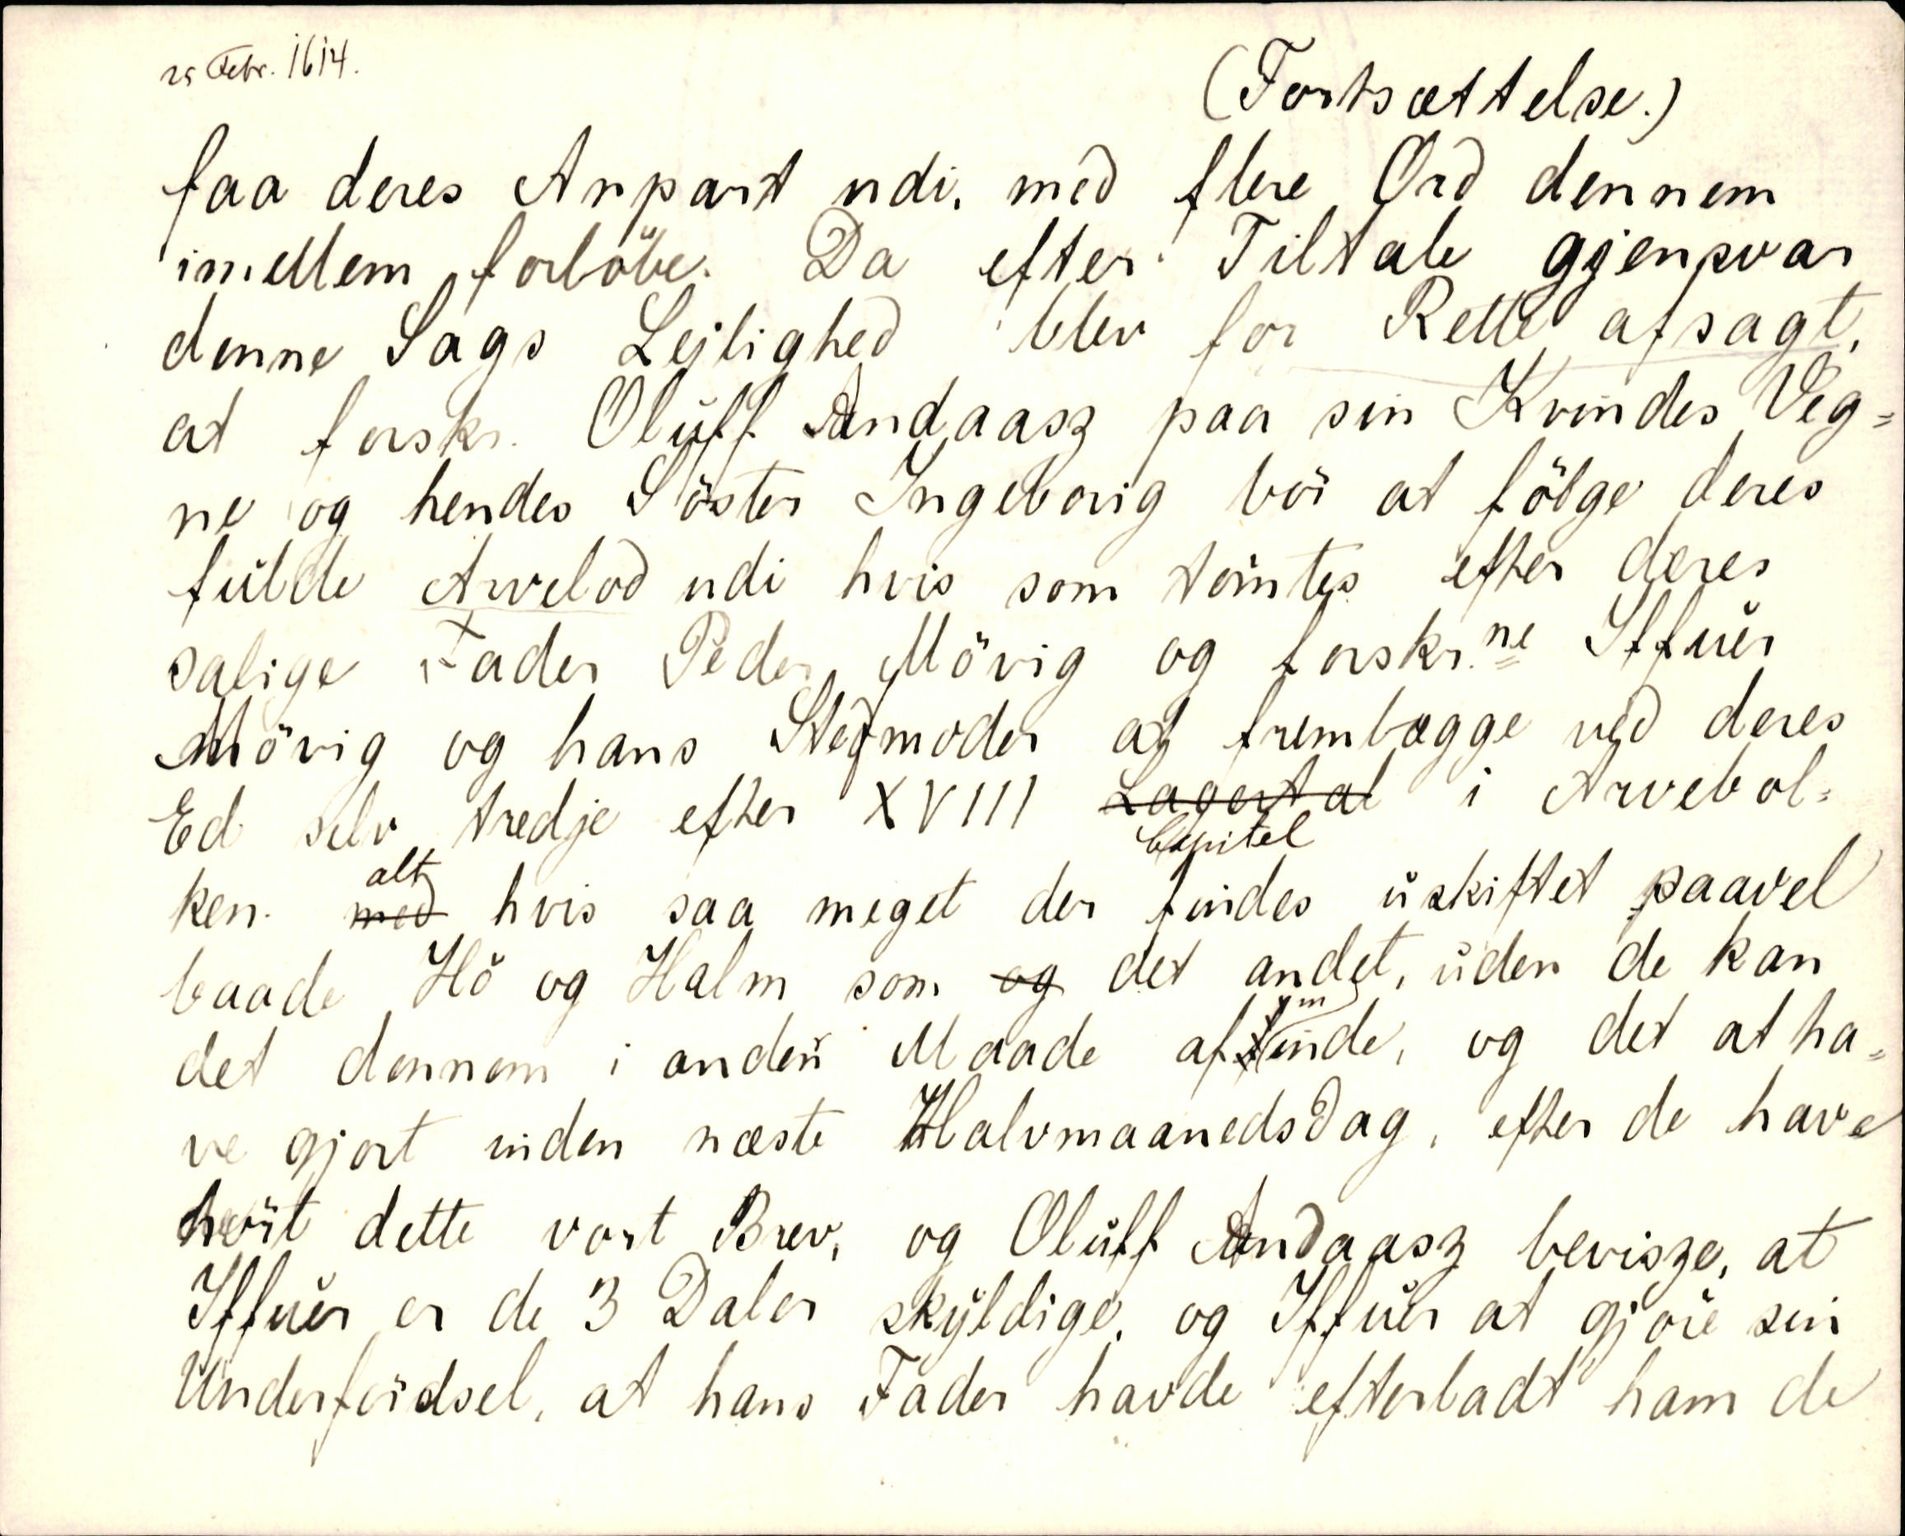 25 Febr. 1614.
(Fortsættelse.)
faa deres Anpart udi, med flere Ord dennem
imellem forløbe. Da efter Tiltale gjensvar
denne Sags Lejlighed blev for Rette afsagt,
at forskr. Oluff Andaasz paa sin Kvindes Veg=
ne og hendes Söster Ingeborig bör at fölge deres
fulde Arvelod udi hvis som töintes efter deres
salige Fader Peder Mövig og forskr.ne Iffuer
Mövig og hans Stedmoder at fremlægge ved deres
Ed selv tredje efter XVIII Lagertal i Arvebol=
Capitel
alt
ken. med hvis saa meget der findes uskiftet paavel
baade Hö og Halm som og det andet, uden de kan
det dennem i anden Maade afvinde, og det at ha=
ve gjort inden næste Halvmaanedsdag, efter de have
hört dette vort Brev, og Oluff Andaasz bevisze, at
Iffuer er de 3 Daler skyldige, og Iffuer at gjöre sin
Underfördsel, at hans Fader havde efterladt ham de